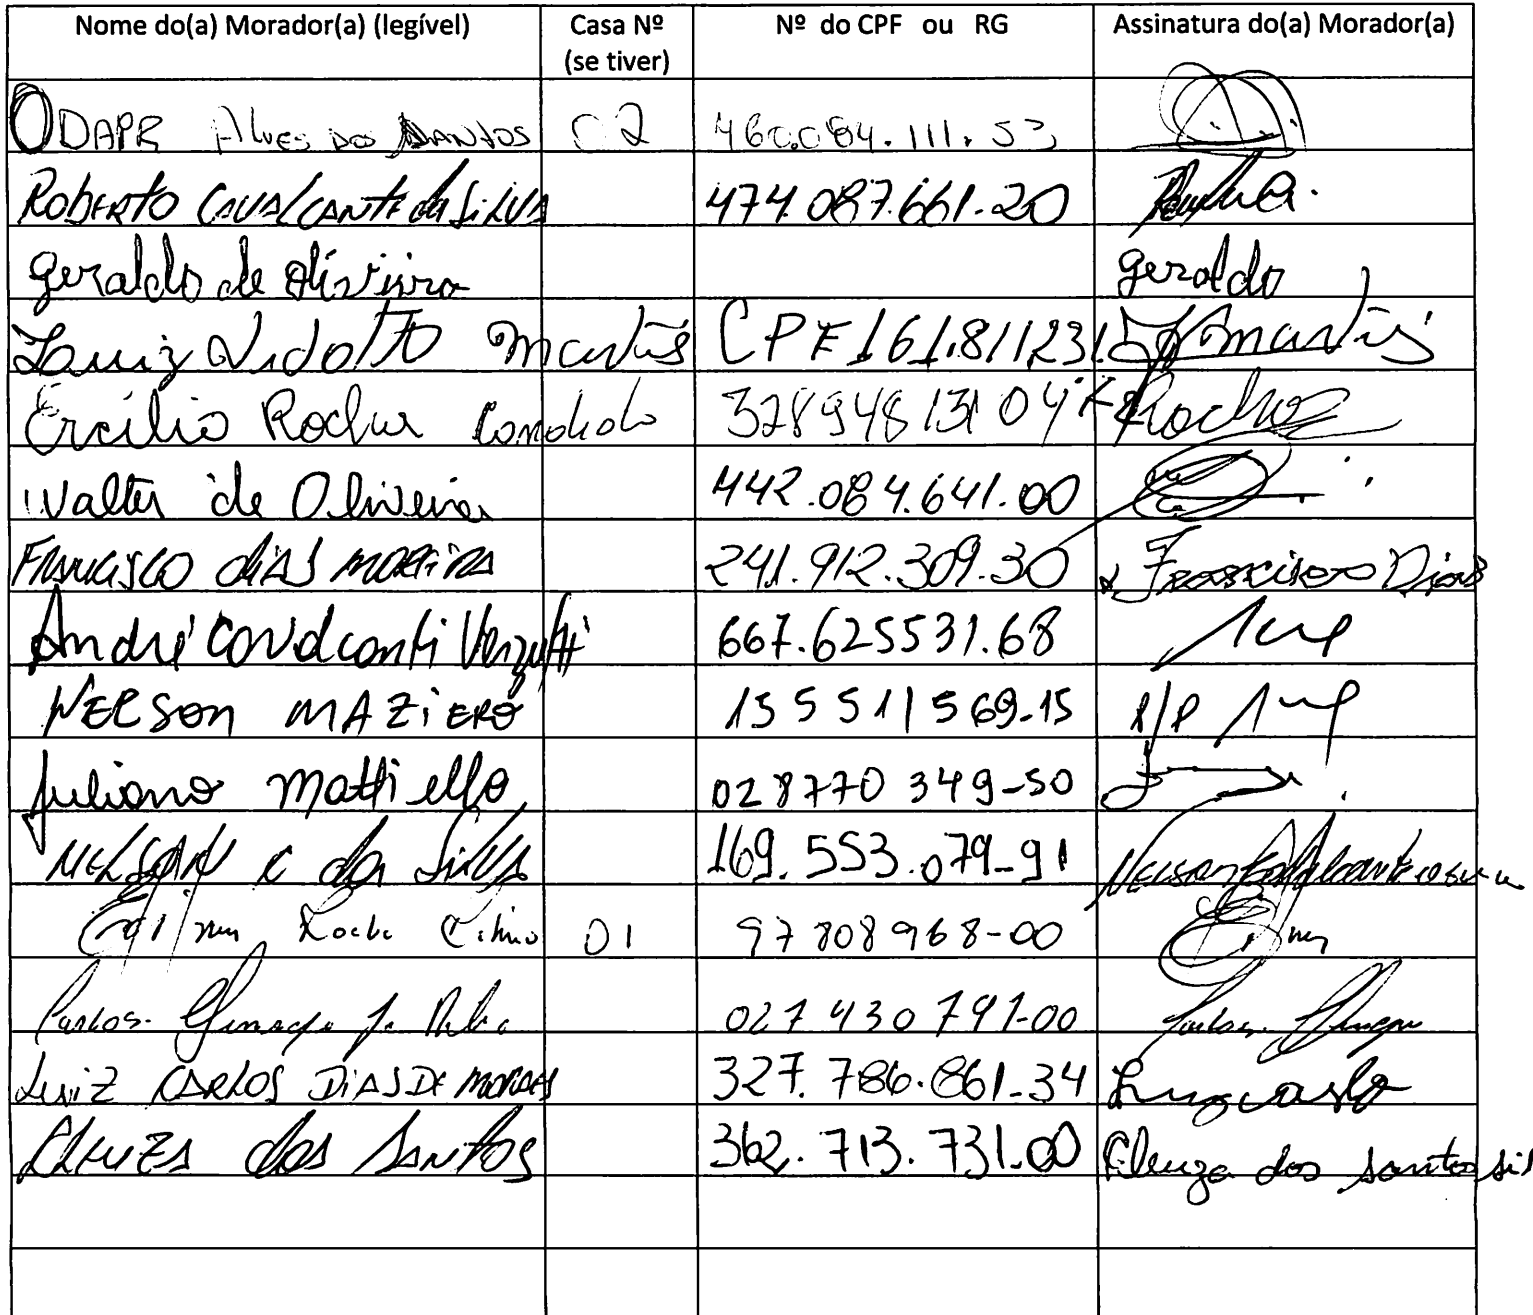 Nome do(a) Morador(a) (legível) Casa Nº (se tiver) Nº do CPF ou RG Assinatura do(a) Morador(a)
ODAPR Alves dos Santos 02 460.084.111.53
Roberto Cavalcante da Silva 474.087.661.20
geraldo de oliviira geraldo
Luiz Vidotto Martins CPF 161.811231 Martins
Ercilio Rocha 328948131 04 Rocha
Walter de Oliveira 442.084.641.00
Francisco dias moreira 241.912.309.30 Francisco Dias
André Cavalcanti Verzutti 667.625531.68
Nelson MAZiERO 155511569-15 P/P
Juliano Mattiello 028770 349-50
Nelson C da Silva 169.553.079-91 Nelson
Rocha 01 97808968-00
Carlos 027430791-00 Carlos
Luiz CARLOS DIAS DE MORAES 327.786.861-34
Cleuza dos Santos 362.713.731.00 Cleuza dos santos sil